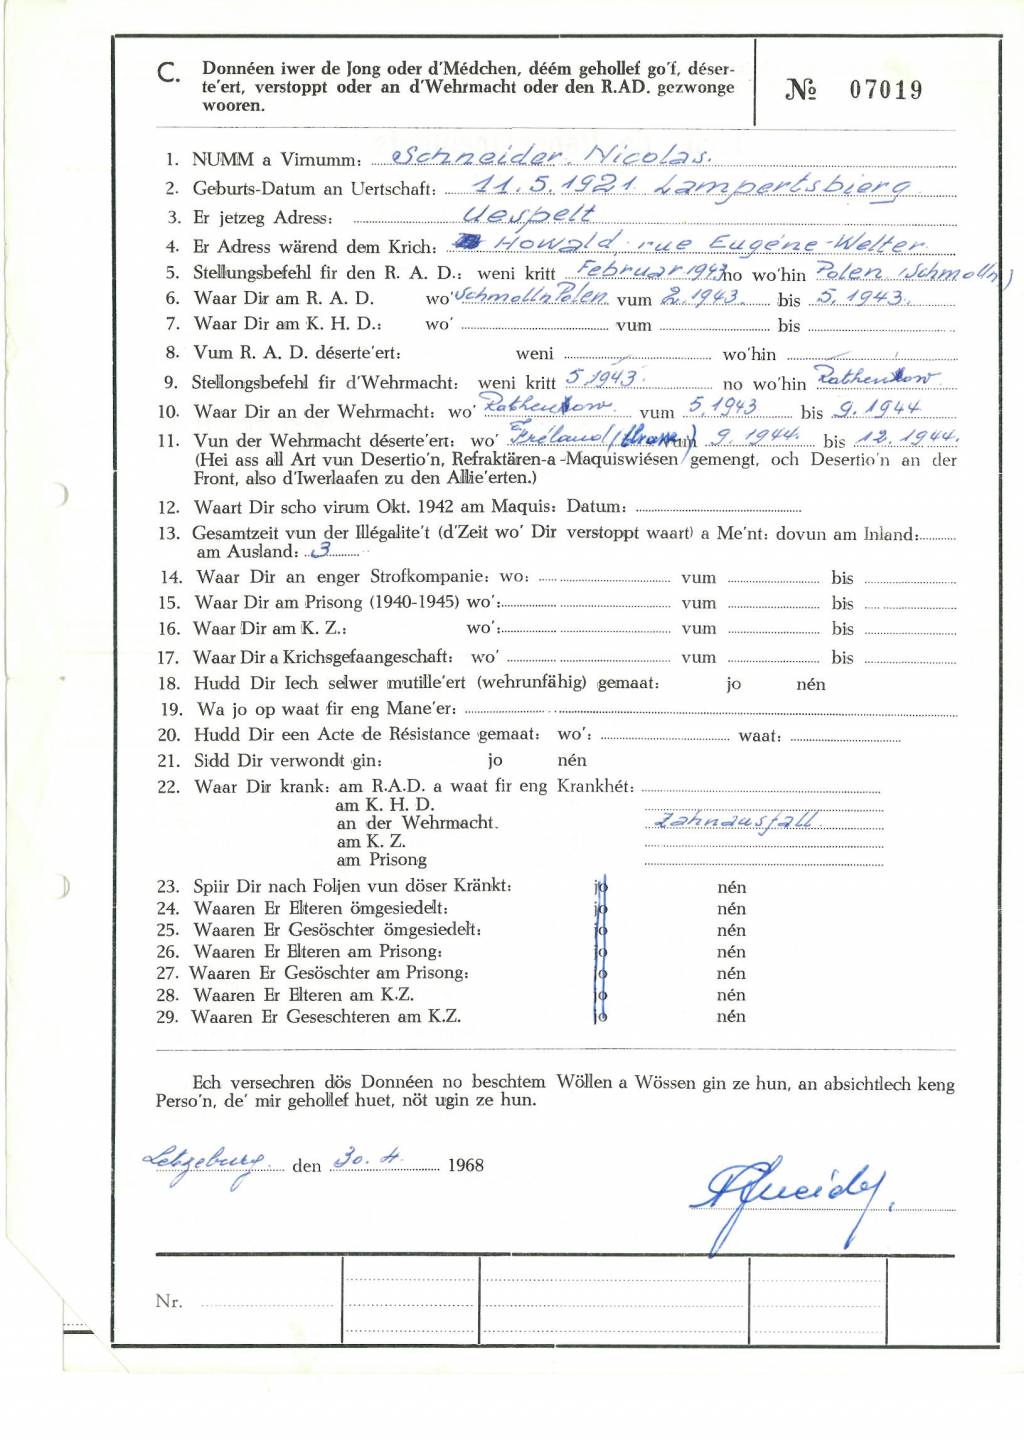 C. Donnéen iwer de Jong oder d'Médchen, déém gehollef go'f, déser-
te'ert, verstoppt oder an d'Wehrmacht oder den R.AD. gezwonge
wooren.
№ 07019
1. NUMM a Virnumm: Schneider Nicolas.
2. Geburts-Datum an Uertschaft: 11.5.1921 Lampertsbierg
3. Er jetzeg Adress: Uespelt
4. Er Adress wärend dem Krich: Howald, rue Eugéne-Welter
5. Stellungsbefehl fir den R. A. D.: weni kritt Februar 1943 no wo'hin Polen (Schmolln)
6. Waar Dir am R. A. D. wo' Schmolln Polen vum 2.1943. bis 5.1943.
7. Waar Dir am K. H. D.: wo' vum bis
8. Vum R. A. D. déserte'ert: weni wo'hin
9. Stellongsbefehl fir d'Wehrmacht: weni kritt 5.1943. no wo'hin Rathenow
10. Waar Dir an der Wehrmacht: wo' Rathenow vum 5.1943 bis 9.1944
11. Vun der Wehrmacht déserte'ert: wo' Fréland / vum 9.1944. bis 12.1944.
(Hei ass all Art vun Desertio'n, Refraktären-a-Maquiswiésen gemengt, och Desertio'n an der
Front, also d'Iwerlaafen zu den Allie'erten.)
12. Waart Dir scho virum Okt. 1942 am Maquis: Datum:
13. Gesamtzeit vun der Illégalite't (d'Zeit wo' Dir verstoppt waart) a Me'nt: dovun am Inland:
am Ausland: 3
14. Waar Dir an enger Strofkompanie: wo: vum bis
15. Waar Dir am Prisong (1940-1945) wo': vum bis
16. Waar Dir am K. Z.: wo': vum bis
17. Waar Dir a Krichsgefaangeschaft: wo' vum bis
18. Hudd Dir Iech selwer mutille'ert (wehrunfähig) gemaat: jo nén
19. Wa jo op waat fir eng Mane'er:
20. Hudd Dir een Acte de Résistance gemaat: wo': waat:
21. Sidd Dir verwondt gin: jo nén
22. Waar Dir krank: am R.A.D. a waat fir eng Krankhét:
am K. H. D.
an der Wehrmacht. Zahnausfall
am K. Z.
am Prisong
23. Spiir Dir nach Foljen vun döser Kränkt: jo nén
24. Waaren Er Elteren ömgesiedelt: jo nén
25. Waaren Er Gesöschter ömgesiedelt: jo nén
26. Waaren Er Elteren am Prisong: jo nén
27. Waaren Er Gesöschter am Prisong: jo nén
28. Waaren Er Elteren am K.Z. jo nén
29. Waaren Er Geseschteren am K.Z. jo nén
Ech versechren dös Donnéen no beschtem Wöllen a Wössen gin ze hun, an absichtlech keng
Perso'n, de' mir gehollef huet, nöt ugin ze hun.
Letzeburg den 30.4. 1968
Nr.